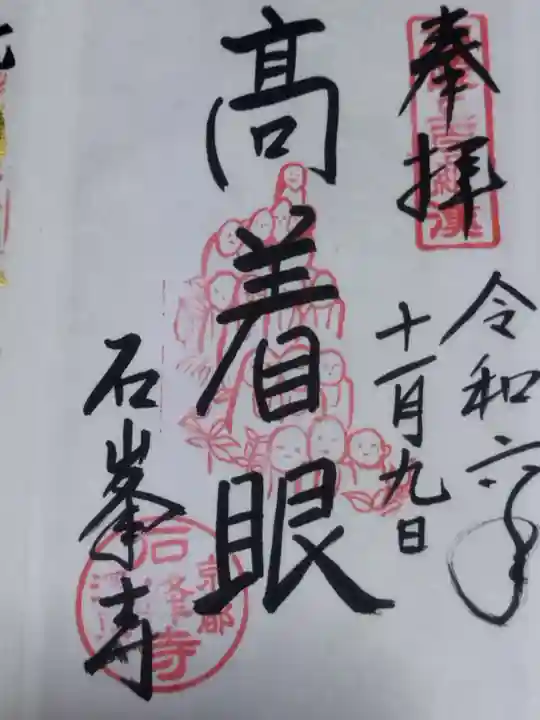 奉拝
令和六年
十一月九日
高着眼
石峯寺
京都
石峰寺
深草